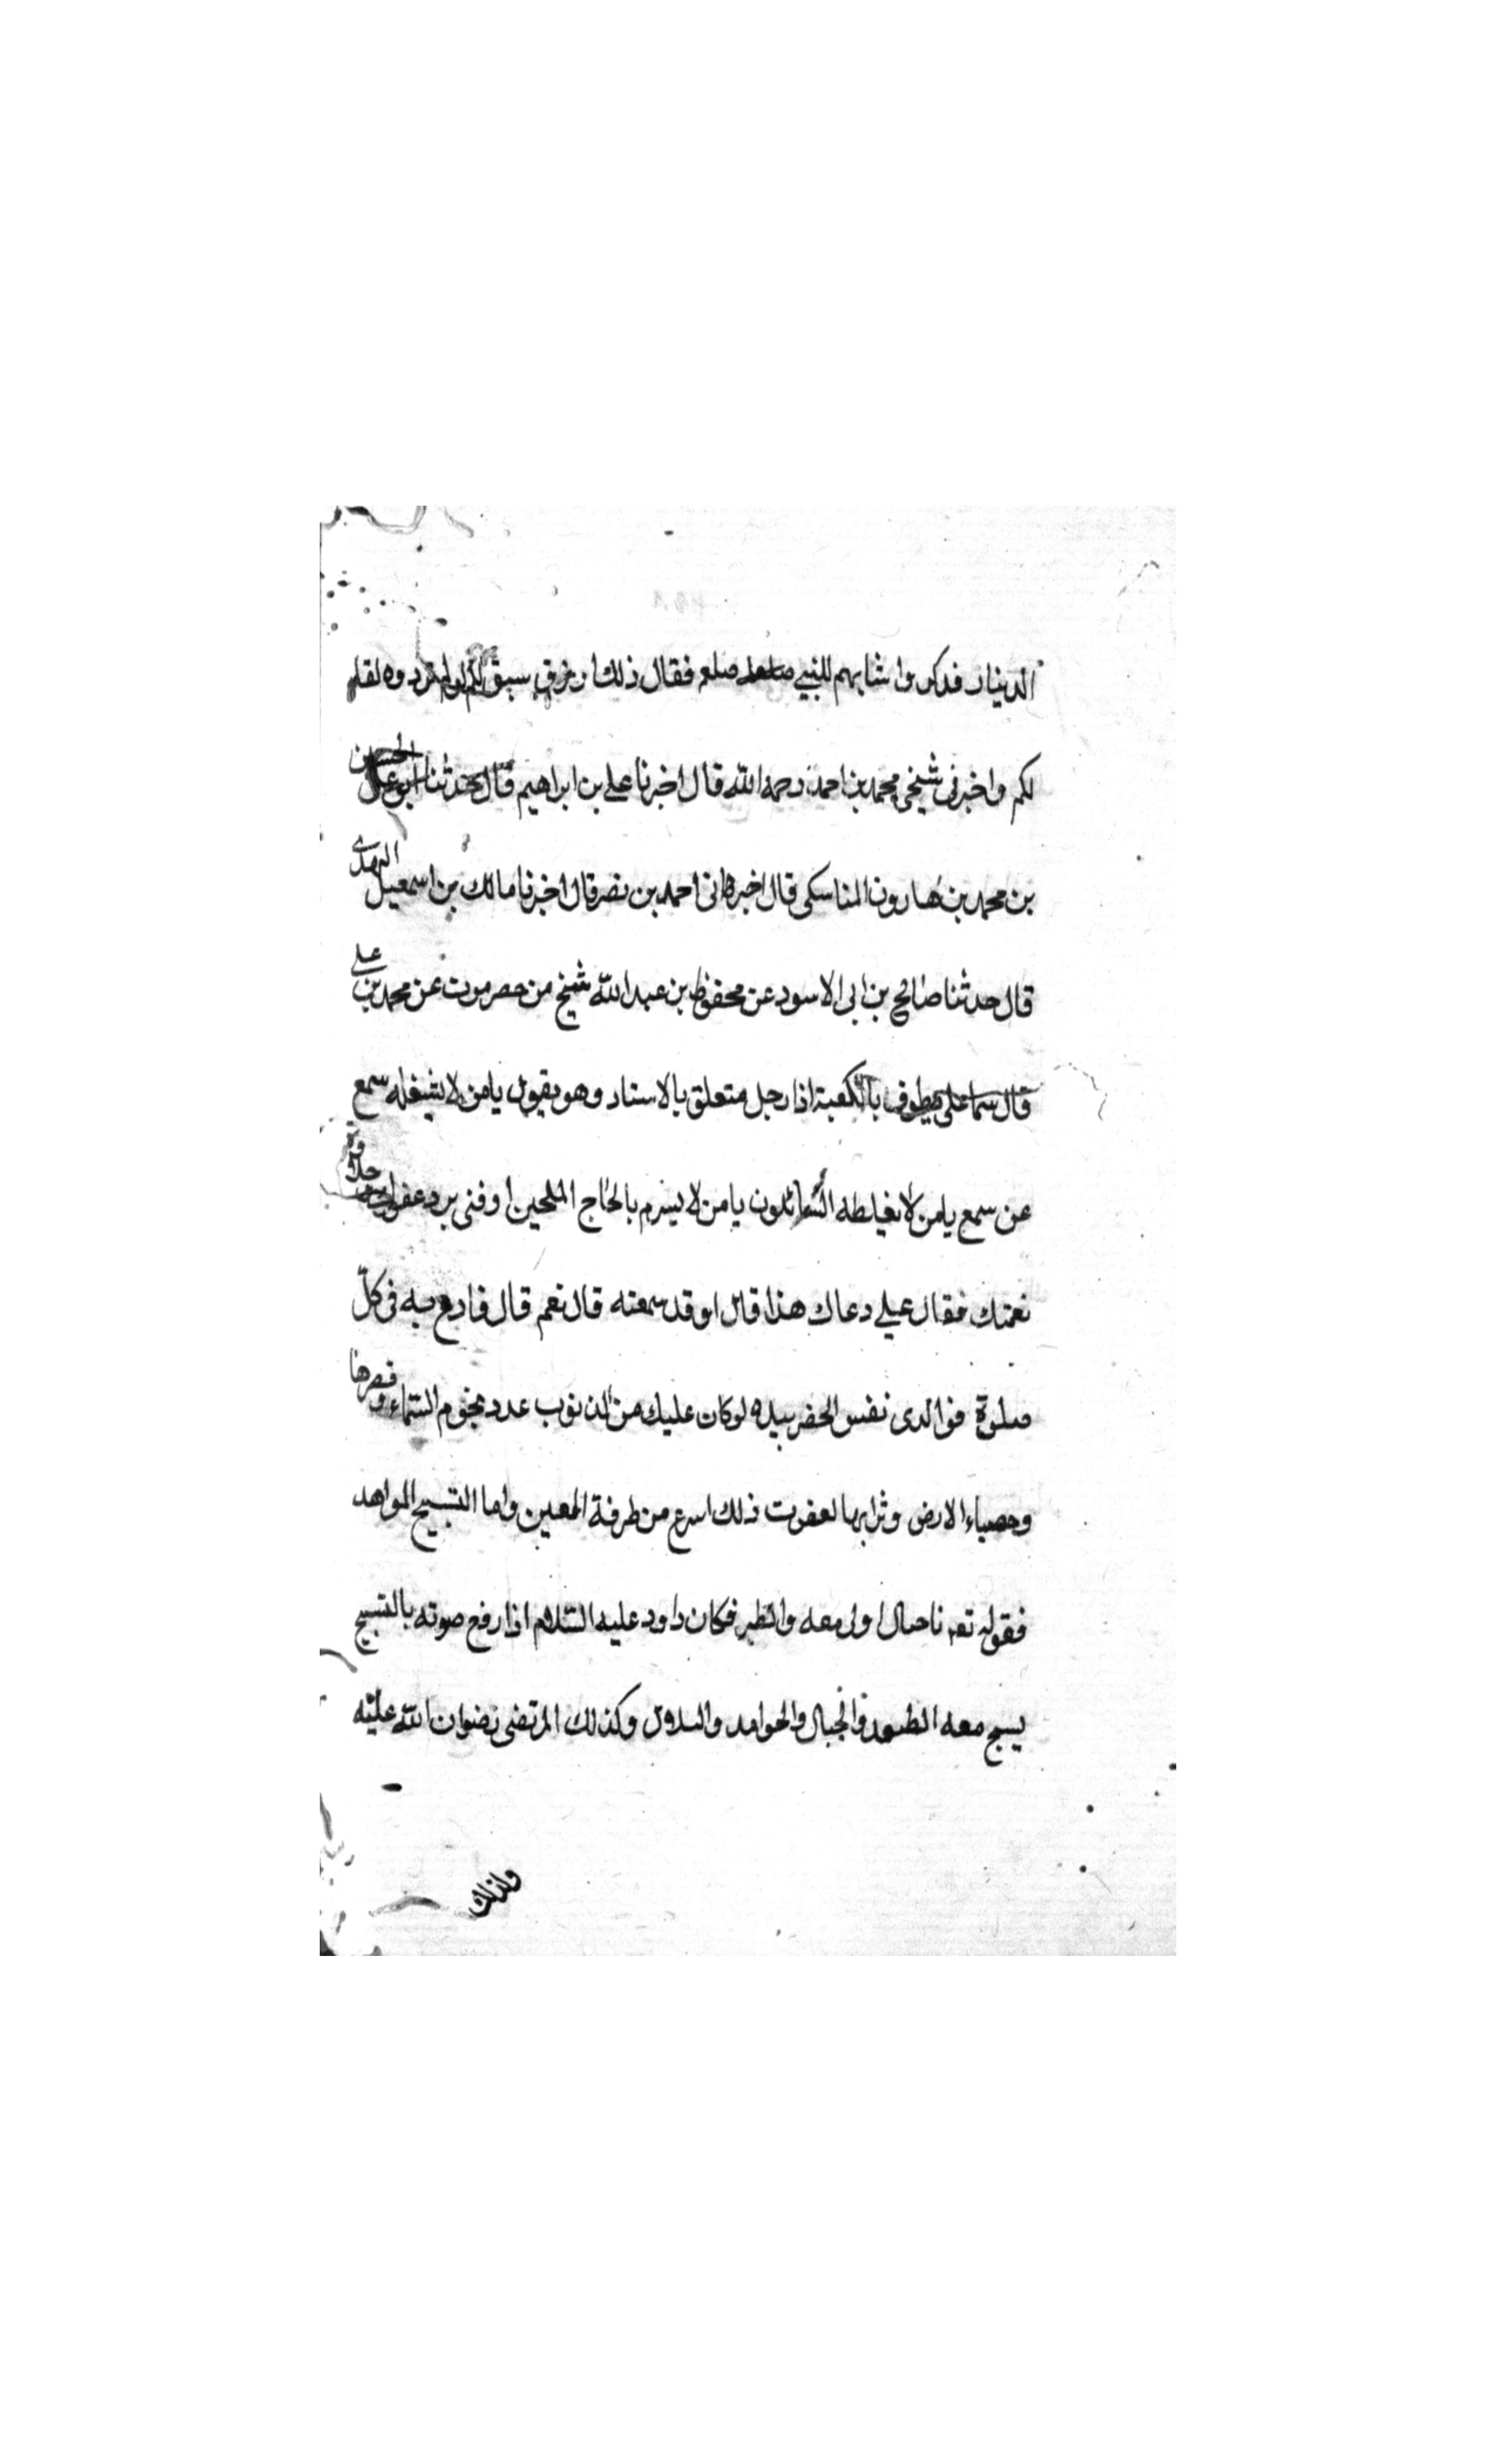 الدينار فذكروا شابهم للنبي صلعم فقال ذلك رزق سبق لكم لو لم تردوه لقلم
لكم واخبرنى شيخى محمد بن احمد رحمه الله قال اخبرنا على بن ابراهيم قال حدثنا ابو على الحسين
بن محمد بن هارون المناسكى قال اخبرنى احمد بن نصر قال اخبرنا مالك بن اسمعيل النهدى
قال حدثنا صالح بن ابى الاسود عن محفوظ بن عبد الله شيخ من حصرموت عن محمد بن على
قال بينما على يطوف بالكعبة اذا رجل متعلق بالاستار وهو يقول يامن لا يشغله سمع
عن سمع يامن لا يغلطه السائلون يامن لا يبرم بالحاح الملحين اذقنى برد عفوك وحلاوة
نعمتك فقال على دعاك هذا قال او قد سمعته قال نعم قال فادع به فى كل
صلوة فوالذى نفس الخضر بيده لو كان عليك من الذنوب عدد نجوم السماء وقصرها
وحصباء الارض وترابها لغفرت ذلك اسرع من طرفة العين واما التسبيح المواهد
فقوله تعه ياجبال اوبى معه والطير فكان داود عليه السلام اذا رفع صوته بالتسبيح
يسبح معه الطيور والجبال والجوامد وكذلك المرتضى رضوان الله عليه
ولذلك